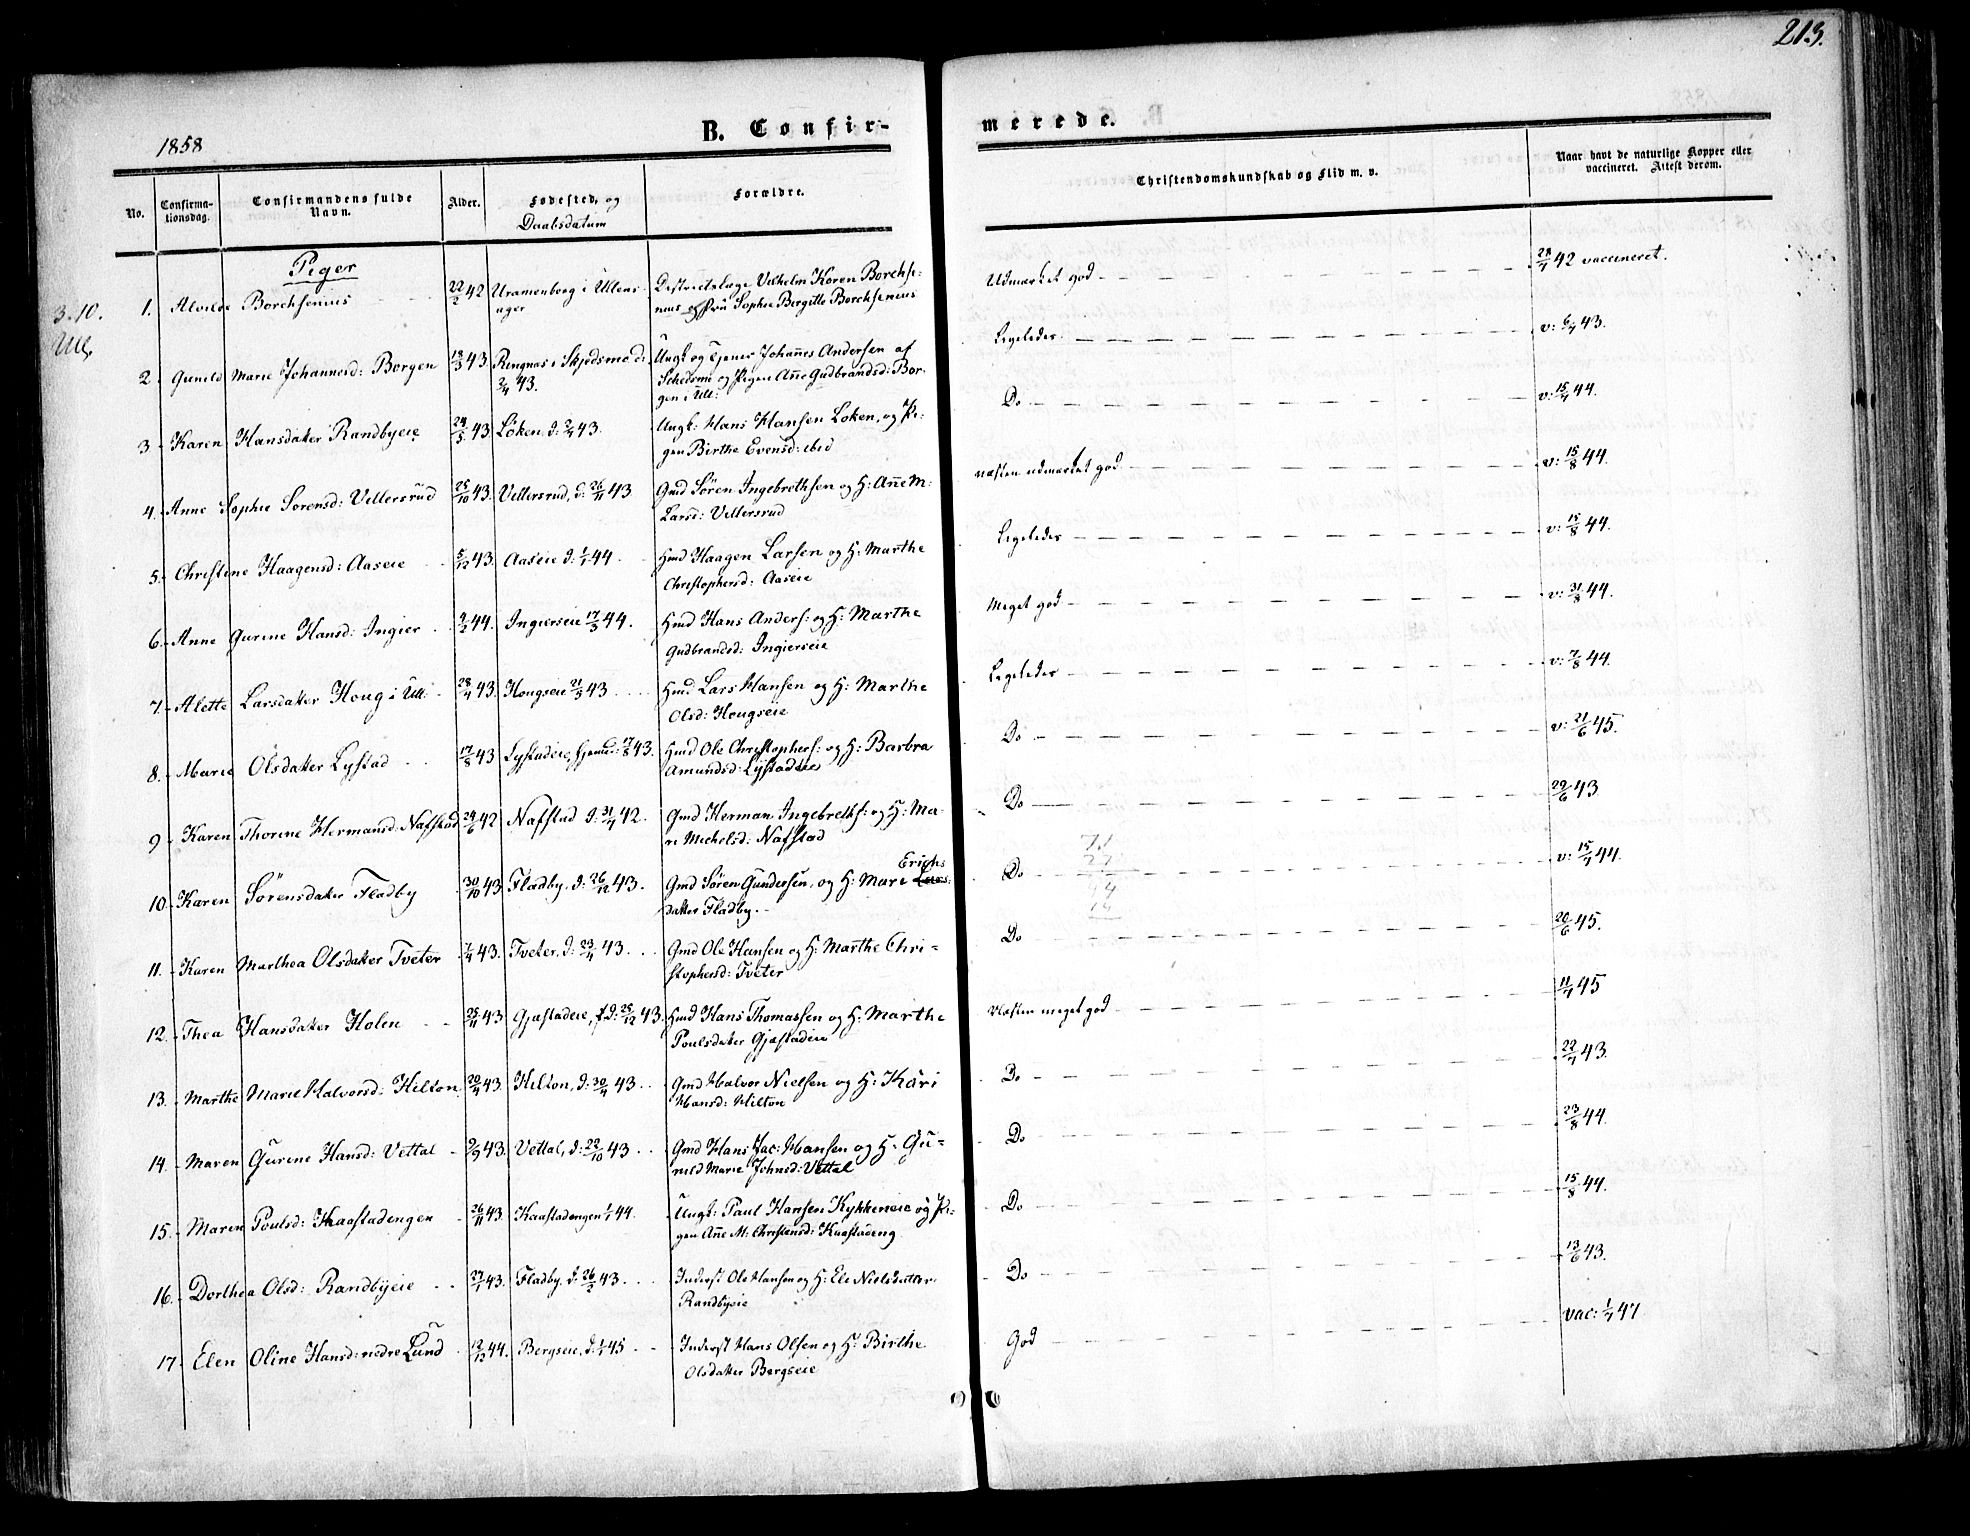 213.
1858
B. Confir-
merede.
No.
Confirma-
tionsdag.
Confirmandens fulde
Navn.
Alder.
Fødested, og
Daabsdatum
Forældre.
Christendomskundskab og Flid m. v.
Naar havt de naturlige Kopper eller
vaccineret. Attest derom.
3.10.
Ull.
Piger
1. Alvilde Borchsenius 22/2 42 Uramenborg i Ullens- Destrictslæge Vilhelm Koren Borchse-
ager nius og Fru Sophie Birgitte Borchsenius
Udmærket god 28/7 42 vaccineret.
2. Gunild Marie Johannesd: Borgen 13/3 43. Ringnæs i Skjedsmo d: Ungk. og Tjener Johañes Andersen af
2/4 43. Schedsmo og Pigen Añe Gudbrandsd: Bor-
gen i Ull:
Ligeledes v: 6/7 43.
3 Karen Hansdatter Randbyeie 24/3 43. Löken, d: 2/7 43. Ungk: Hans Hansen Löken, og Pi-
gen Birthe Evensd: ibid
Do v: 15/7 44.
4. Anne Sophie Sörensd: Vellersrud 25/10 43. Vellersrud, d: 26/11 43 Gmd Sören Ingebrethsen og H: Añe M:
Larsd: Vellersrud
næsten udmærket god v: 15/8 44.
5. Christine Haagensd: Aaseie 5/12 43. Aaseie d: 1/1 44. Hmd Haagen Larsen og H: Marthe
Christophersd: Aaseie
Ligeledes v: 15/8 44.
6. Anne Gurine Hansd: Ingier 2/2 44. Ingierseie 17/3 44. Hmd Hans Anders: og H: Marthe
Gudbrandsd: Ingierseie
Meget god v: 31/8 44.
7. Alette Larsdatter Houg i Ull: 28/4 43. Hougseie 21/5 43 Hmd Lars Hansen og H: Marthe
Olsd: Hougseie
Ligeledes v: 7/8 44.
8. Marie Olsdatter Lystad 17/8 43 Lystadeie, hjemmed: 17/8 43. Hmd Ole Christophers: og H: Barbra
Amundsd: Lystadeie
Do v: 21/6 45.
9 Karen Thorine Hermansd: Nafstad 24/6 42 Nafstad d: 31/7 42. Gmd Herman Ingebreths: og H: Ma-
ri Michelsd: Nafstad
Do 29/6 43
10. Karen Sörensdatter Fladby 30/10 43 Fladby. d: 26/12 43. Gmd Sören Gundersen, og H: Mari Erichs
datter Fladby.
Do v: 15/7 44.
11. Karen Marthea Olsdatter Tveter 7/4 43. Tveter, d: 23/4 43. Gmd Ole Hansen og H: Marthe Chri-
stophersd: Tveter
Do 20/6 45.
12. Thea Hansdatter Holen 25/11 43 Gjestadeie, d: 25/12 43. Hmd Hans Thomassen og H: Marthe
Poulsdatter Gjestadeie
Næsten meget god 11/7 45
13. Marthe Marie Halvorsd: Hilton 20/4 43. Hilton, d: 30/4 43. Gmd Halvor Nielsen og H: Kari
Hansd: Hilton
Do 22/7 43.
14. Maren Gurine Hansd: Vettal 2/9 43. Vettal, d: 22/10 43 Gmd Hans Jac: Hansen og H: Gu-
nild Marie Johnsd: Vettal
Do 23/8 44.
15. Maren Poulsd: Kaastadengen 26/11 43. Kaastadengen 1/1 44. Ungk: Paul Hansen Kykkeneie og Pi-
gen Añe M: Christensd: Kaastadeng
Do 15/8 44.
16. Dorthea Olsd: Randbyeie 27/1 43. Fladby. d: 26/2 43. Inderst Ole Hansen og H: Ele Nielsdatter
Randbyeie
Do 13/6 43.
17. Elen Oline Hansd: nedre Lund 12/12 44. Bergseie, d: 1/1 45 Inderst Hans Olsen og H: Birthe
Olsdatter Bergseie
God vac: 1/7 47